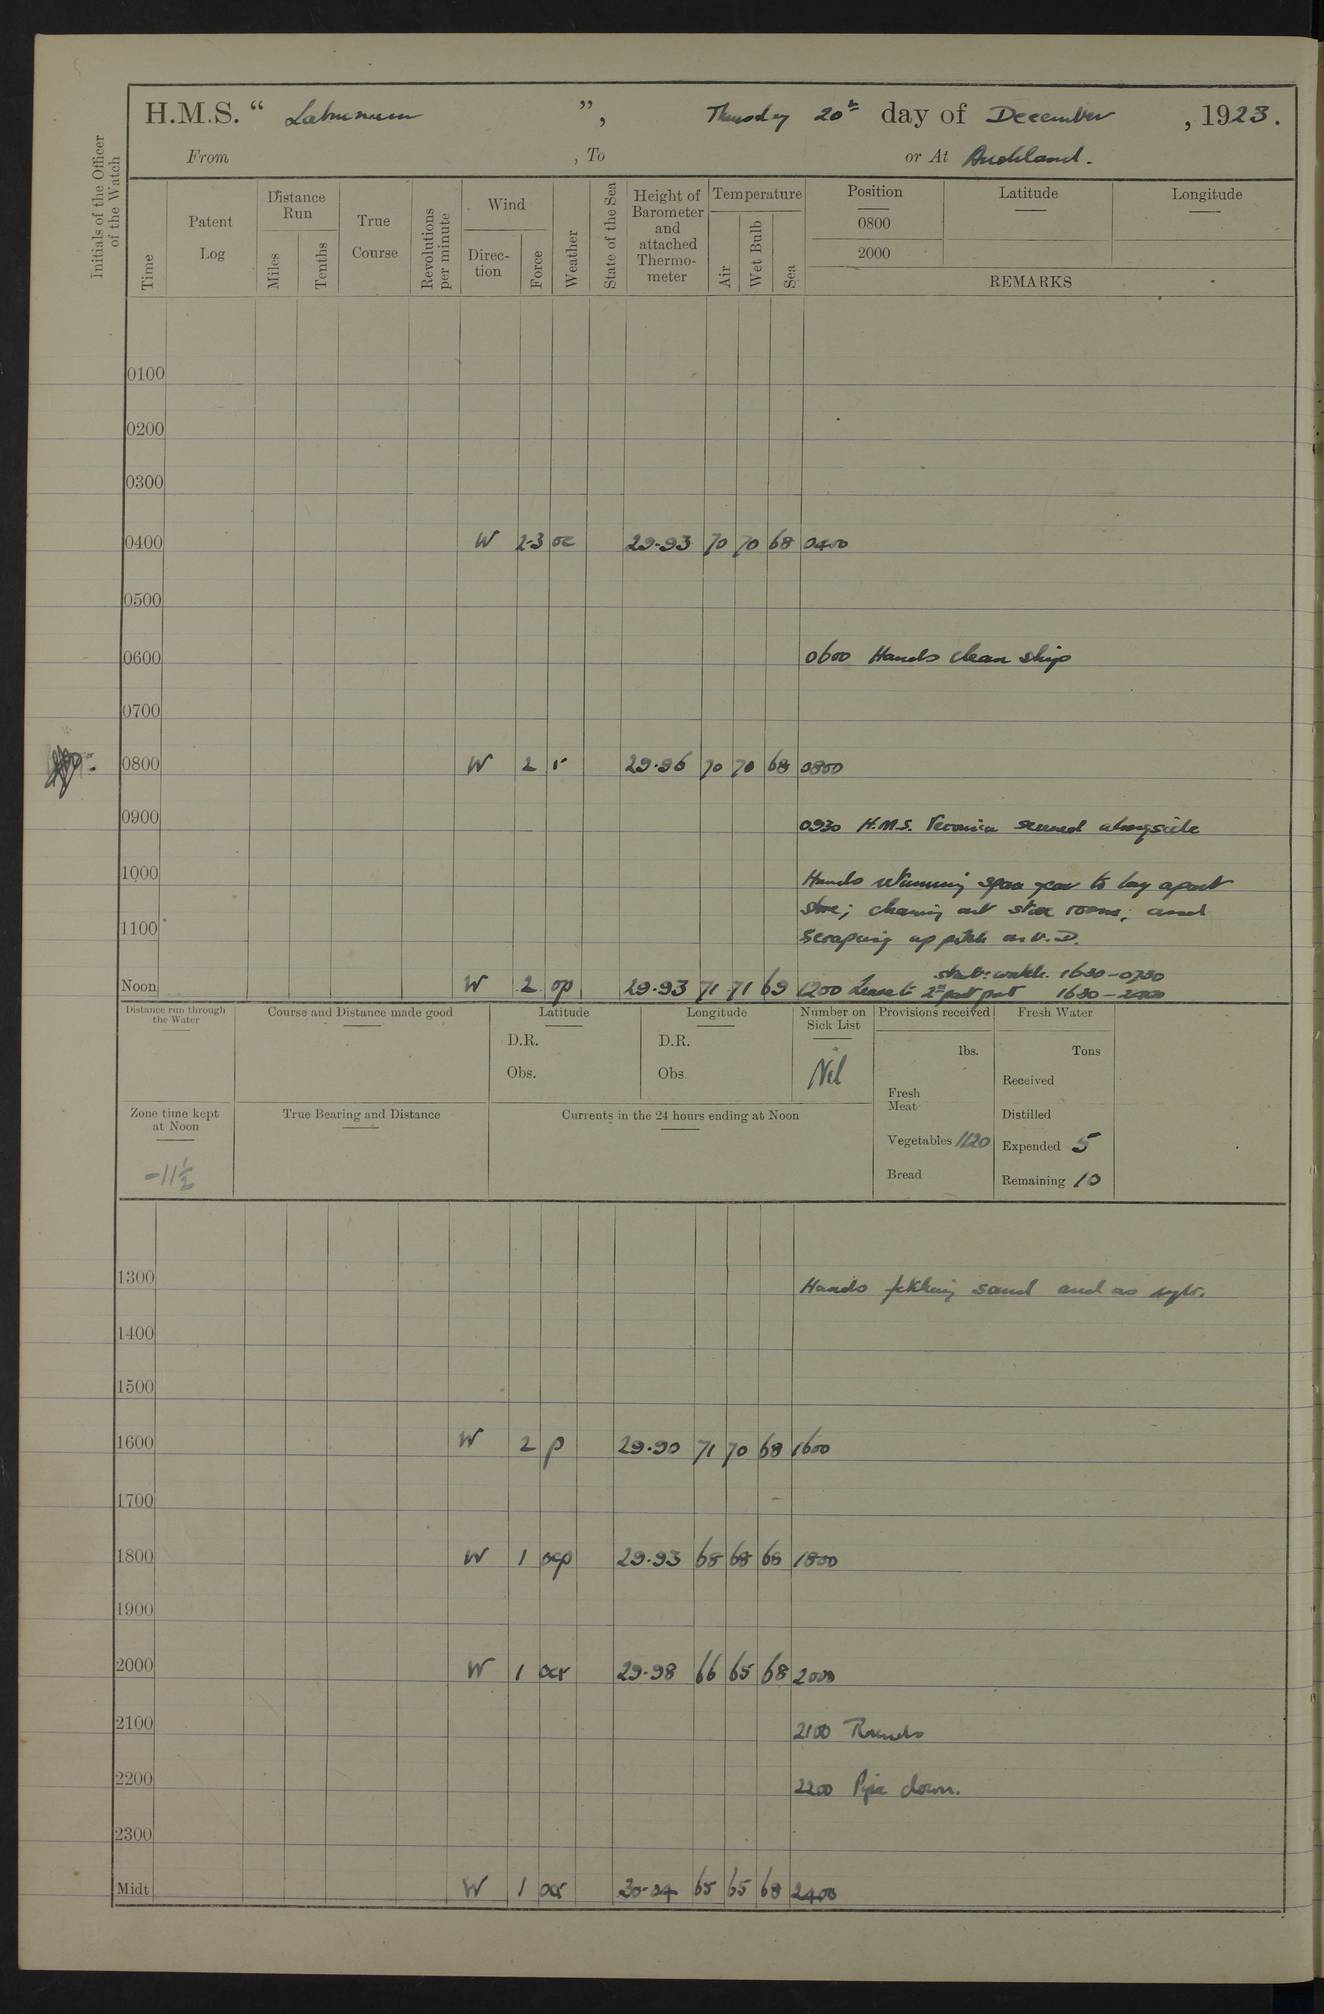 H.M.S. “ Laburnum ”, Thursday 20th day of December , 1923.
From , To or At Auckland.
Initials of the Officer of the Watch
Time
Patent Log
Distance Run
Miles
Tenths
True Course
Revolutions per minute
Wind
Direction
Force
Weather
State of the Sea
Height of Barometer and attached Thermometer
Temperature
Air
Wet Bulb
Sea
Position
0800
2000
Latitude
Longitude
REMARKS
0100
0200
0300
0400 W 2-3 oc 29.93 70 70 68 0400
0500
0600 0600 Hands clean ship
0700
0800 W 2 r 29.96 70 70 68 0800
0900 0930 H.M.S. Veronica secured alongside
1000 Hands returning spare gear to lay apart
store; cleaning out store rooms, and
1100 scraping up pitch on U.D.
Noon W 2 op 29.93 71 71 69 1200 Leave to watch 1630-0730
2nd part port 1630-2200
Distance run through the Water
Course and Distance made good
Latitude
D.R.
Obs.
Longitude
D.R.
Obs
Number on Sick List
Nil
Provisions received
lbs.
Fresh Meat
Vegetables 1120
Bread
Fresh Water
Tons
Received
Distilled
Expended 5
Remaining 10
Zone time kept at Noon
-11½
True Bearing and Distance
Currents in the 24 hours ending at Noon
1300 Hands fetching sand and as reqte.
1400
1500
1600 W 2 p 29.90 71 70 68 1600
1700
1800 W 1 ocp 29.93 68 68 68 1800
1900
2000 W 1 ocr 29.98 66 65 68 2000
2100 2100 Rounds
2200 2200 Pipe down.
2300
Midt W 1 ocr 30.04 65 65 68 2400